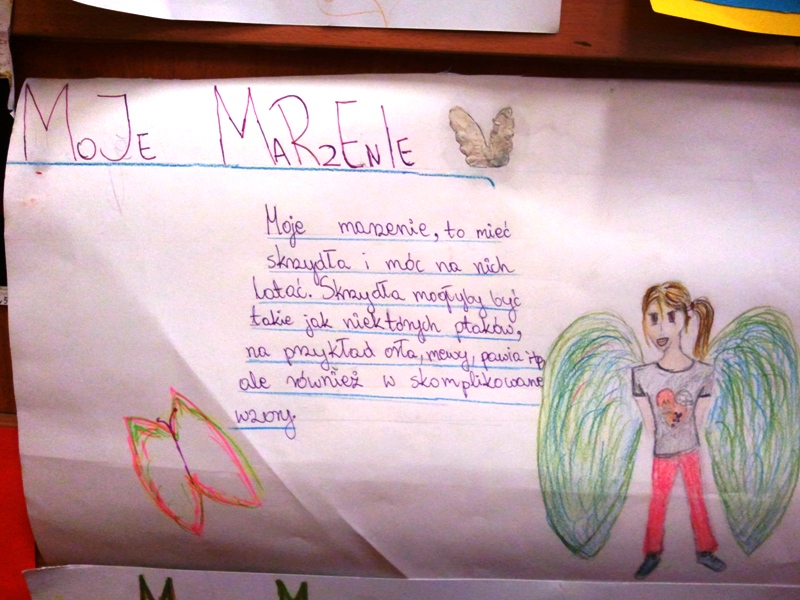 MOJE MARZENIE
Moje marzenie, to mieć
skrzydła i móc na nich
latać. Skrzydła mogłyby być
takie jak niektórych ptaków,
na przykład orła, mewy, pawia itp,
ale również w skomplikowane
wzory.
M M